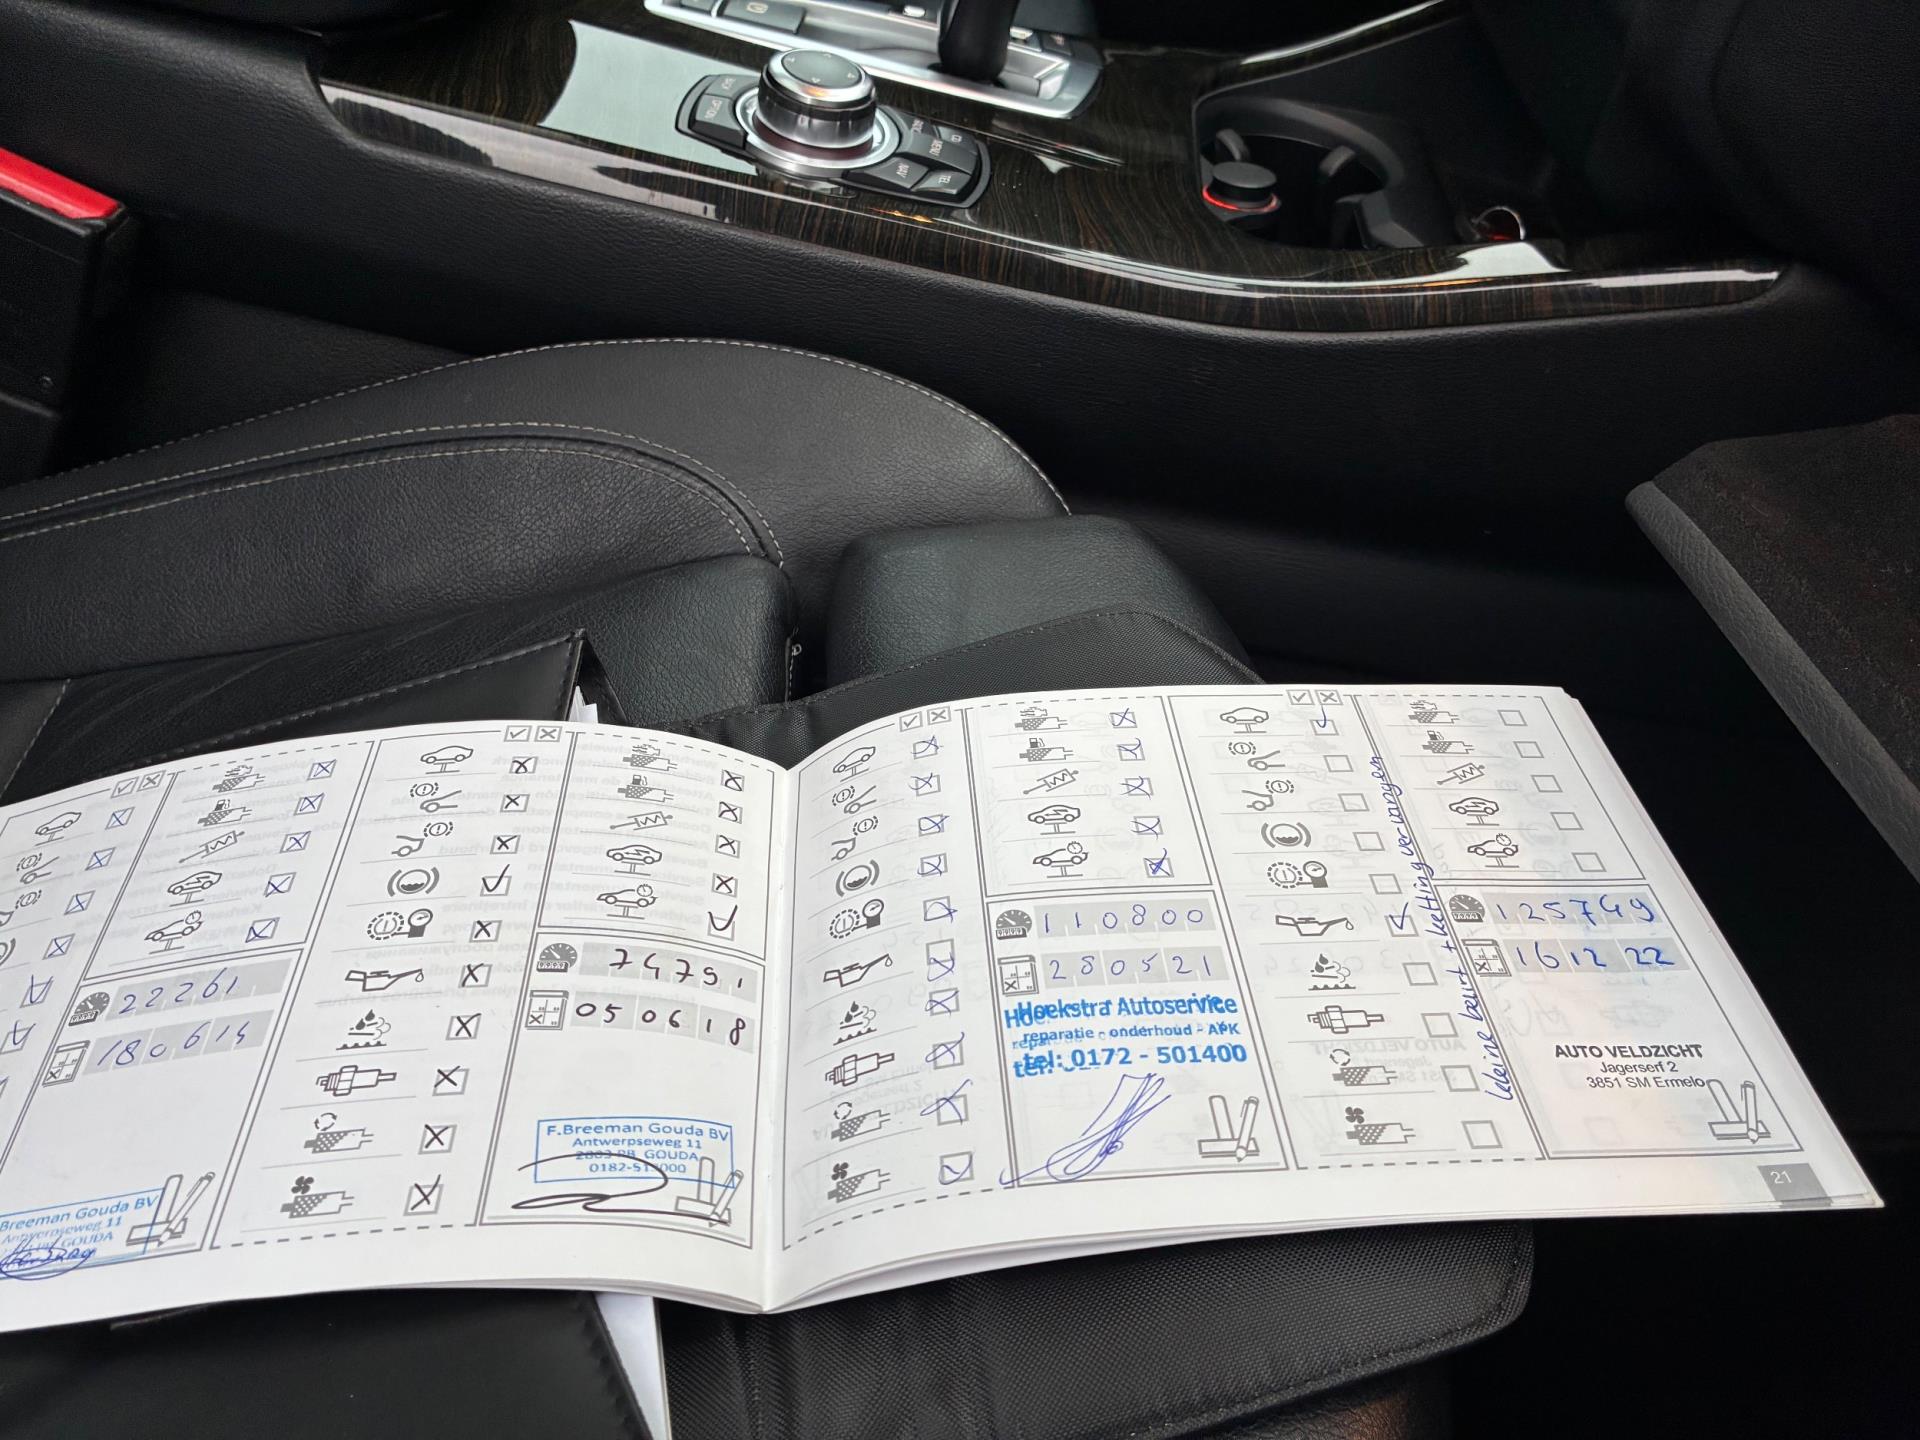 OPTION
CD
MENU
NAV
TEL
22261
180614
Breeman Gouda BV
Antwerpseweg 11
GOUDA
74751
050618
F.Breeman Gouda BV
Antwerpseweg 11
2803 PB GOUDA
0182-513000
110800
280521
Hoekstra Autoservice
reparatie - onderhoud - APK
tel: 0172 - 501400
kleine beurt + ketting vervangen
125749
161222
AUTO VELDZICHT
Jagerserf 2
3851 SM Ermelo
21